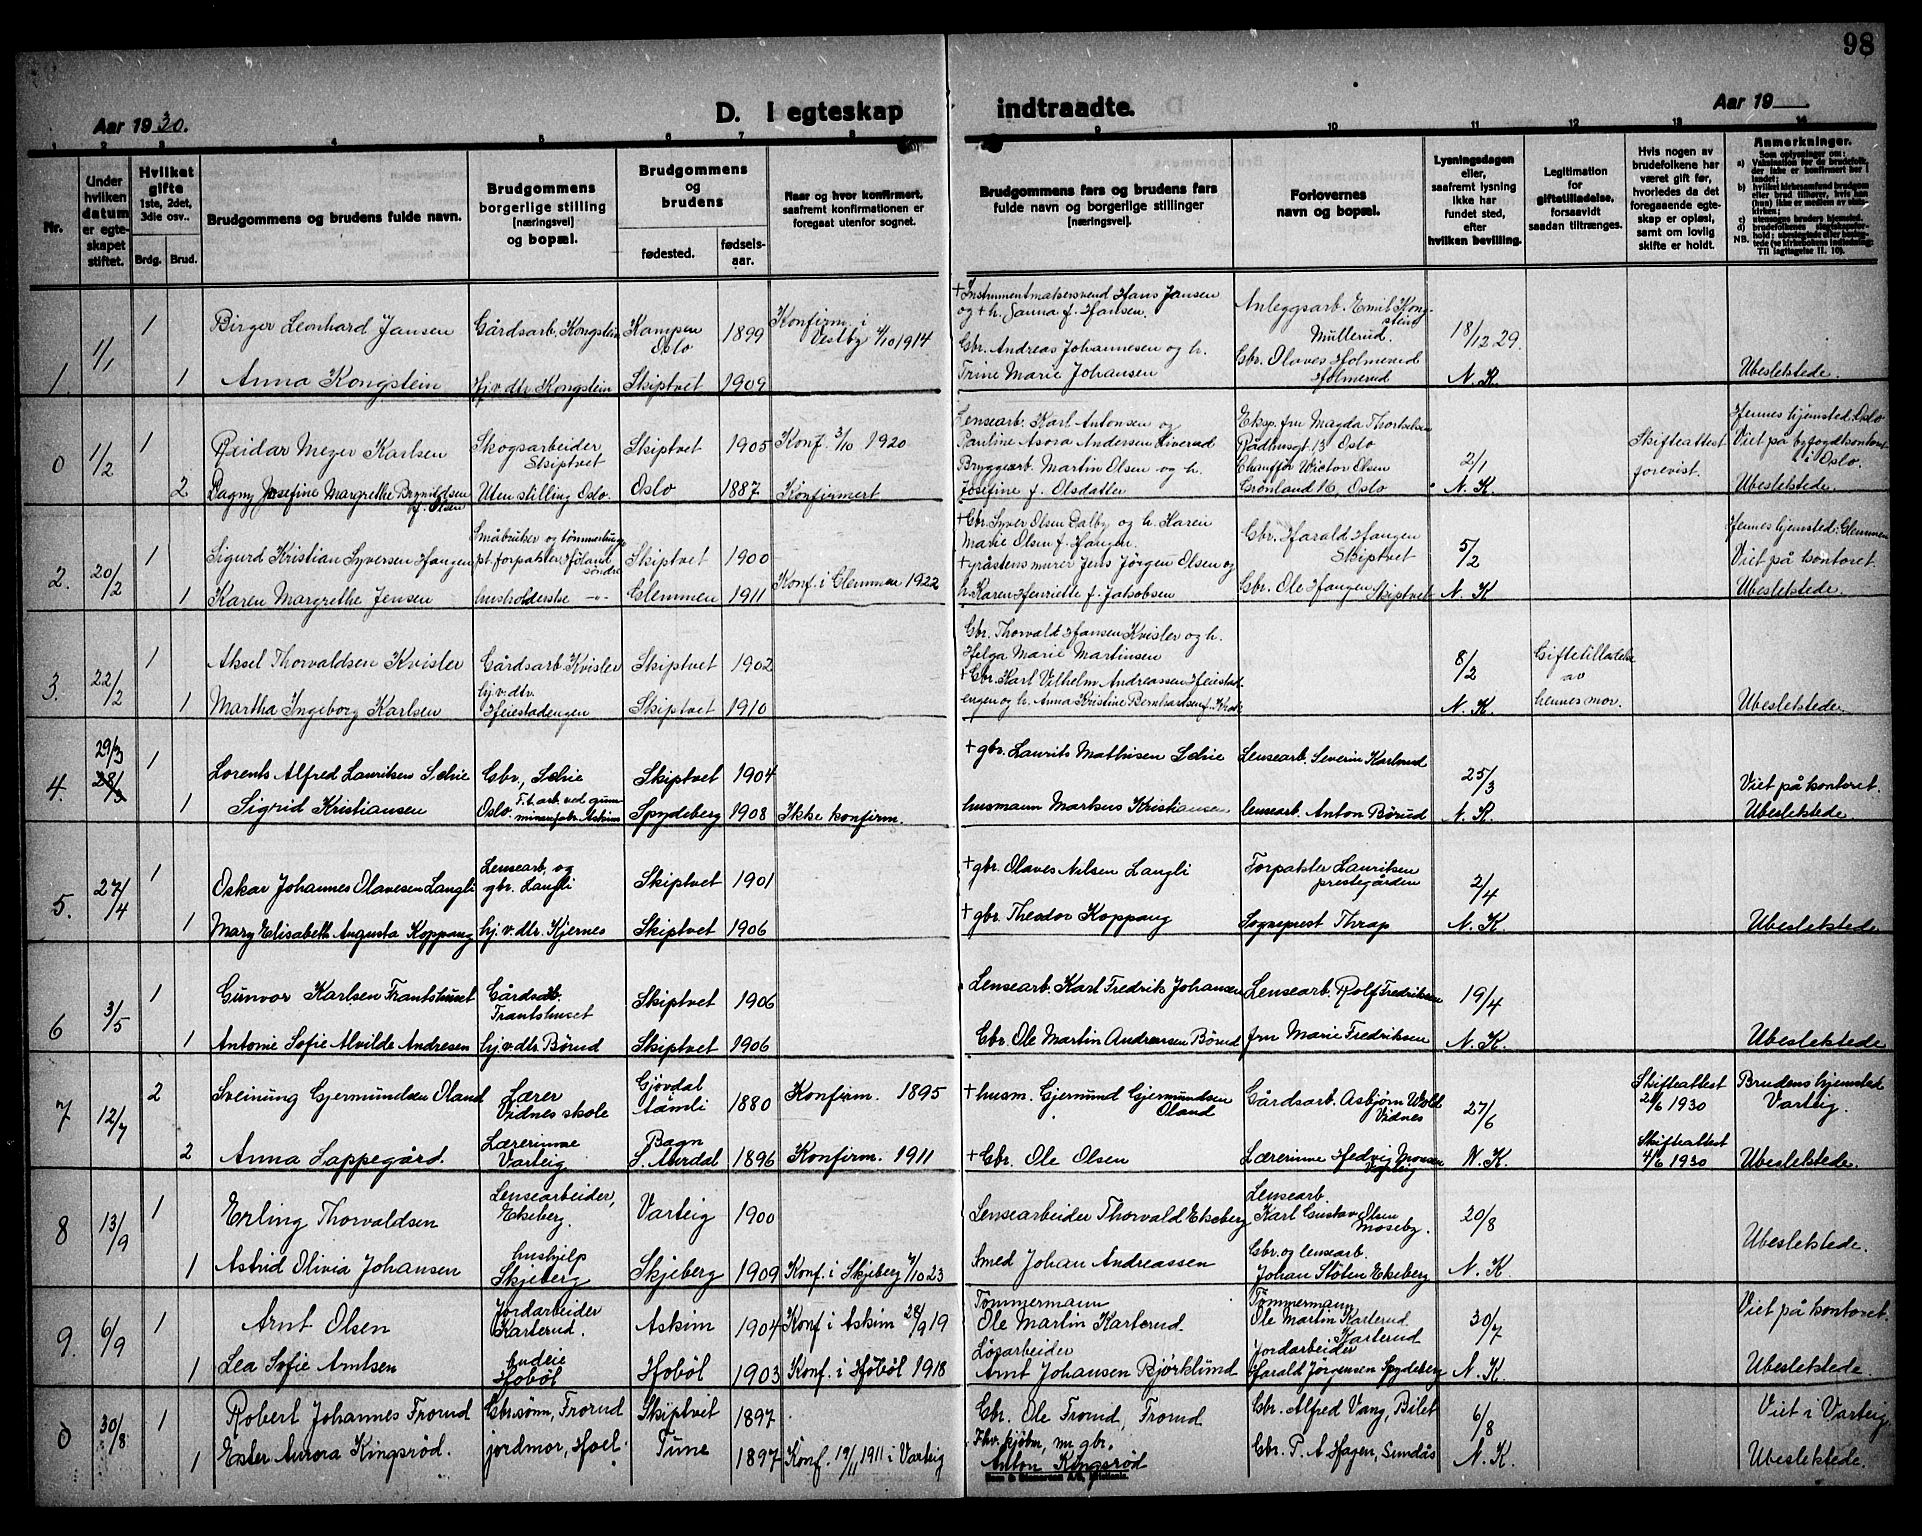 98
Aar 1930.
D. I egteskap indtraadte.
Aar 19
1 2 3 4 5 6 7 8 9 10 11 12 13 14
Nr.
Under hvilken datum er egteskapet stiftet.
Hvilket gifte 1ste, 2det, 3die osv..
Brdg. Brud.
Brudgommens og brudens fulde navn.
Brudgommens borgerlige stilling [næringsvei] og bopæl.
Brudgommens og brudens
fødested. fødsels-aar.
Naar og hvor konfirmert, saafremt konfirmationen er foregaat utenfor sognet.
Brudgommens fars og brudens fars fulde navn og borgerlige stillinger [næringsvei].
Forlovernes navn og bopæl.
Lysningsdagen eller, saafremt lysning ikke har fundet sted, efter hvilken bevilling.
Legitimation for giftetilladelse, forsaavidt saadan tiltrænges.
Hvis nogen av brudefolkene har været gift før, hvorledes da det foregaaende egteskap er opløst, samt om lovlig skifte er holdt.
Anmerkninger.
1. 1/1 1 Birger Leonhard Jansen Gårdsarb. Kongstein Kampen Oslo 1899 Konfirm. i Vestby 4/10 1914
+ Instrumentmakersvend Hans Jansen og + h. Janna f. Hansen. Anleggsarb. Emil Kongstein Mullerud. 18/12 29.
1 Anna Kongstein Hj.v.dtr. Kongstein Skiptvet 1909
Gbr. Andreas Johannesen og h. Trine Marie Johansen Gbr. Olaves Holmerud Holmerud N. K. Ubeslektede.
0 1/2 1 Reidar Mezer Karlsen Skogsarbeider Skiptvet Skiptvet 1905 Konf. 3/10 1920
Lensearb. Karl Antonsen og Pauline Asora Andersen Liverud Eksp. frn Magda Thorkelsen Rådhusgt. 13 Oslo 2/1 Skifteattest forevist. Hennes hjemsted: Oslo Viet på byfogdkontoret i Oslo.
2 Dagny Josefine Margrethe Brynildsen f. Olsen Uten stilling Oslo. Oslo 1887 Konfirmert
Bryggearb. Martin Olsen og h. Josefine f. Olsdatter Chauffør Victor Olsen Grønland 16, Oslo N. K. Ubeslektede.
2. 20/2 1 Sigurd Kristian Syversen Haugen Småbruker og tømmerhugger pt. forpakter Høland søndre Skiptvet 1900
+ Gbr. Syver Olsen Dalby og h. Karen Marie Olsen f. Haugen. Gbr. Harald Haugen Skiptvet 5/2 Hennes hjemsted: Glemmen Viet på kontoret.
1 Karen Margrethe Jensen husholderske -"- Glemmen 1911 Konf. i Glemmen 1922
+ gråstensmurer Jens Jörgen Olsen og h. Karen Henriette f. Jakobsen Gbr. Ole Haugen Skiptvet N. K. Ubeslektede.
3. 22/2 1 Aksel Thorvaldsen Kvisler Gårdsarb. Kvisler Skiptvet 1902
Gbr. Thorvald Hansen Kvisler og h. Helga Marie Martinsen 8/2 Giftetilladelse av hennes mor.
1 Martha Ingeborg Karlsen hj.v.dtr. Heiestadengen Skiptvet 1910
+ Gbr. Karl Vilhelm Andreassen Heiestadengen og h. Anna Kristine Bernhardsen N. K. Ubeslektede.
4. 29/3 28/3 1 Lorents Alfred Lauritsen Schie Gbr., Schie Skiptvet 1904
+ gbr. Laurits Mathisen Schie Lensearb. Severin Karlsrud 25/3 Viet på kontoret.
1 Sigrid Kristiansen Oslo. F.t. arb. ved gummivarefabr. Askim Spydeberg 1908 Ikke konfirm.
husmann Markus Kristiansen lensearb. Anton Børud N. K. Ubeslektede.
5. 27/4 1 Oskar Johannes Olavesen Langli Lensearb. og gbr. Langli Skiptvet 1901
+ gbr. Olaves Nilsen Langli Forpakter Lauritsen prestegården 2/4
1 Mary Elisabeth Augusta Koppang hj.v.dtr. Kjernes Skiptvet 1906
+ gbr. Theodor Koppang Sogneprest Thrap N. K. Ubeslektede
6 3/5 1 Gunvor Karlsen Frantshuset Gårdsarb. Frantshuset Skiptvet 1906
Lensearb. Karl Fredrik Johansen Lensearb. Rolf Fredriksen 19/4
1 Antonie Sofie Alvilde Andresen hj.v.dtr. Børud Skiptvet 1906
Gbr. Ole Martin Andreassen Børud frn Marie Fredriksen N. K. Ubeslektede
7 12/7 2 Sveinung Gjermundsen Oland Lærer Vidnes skole Gjøvdal Åmli 1880 Konfirm. 1895
+ husm. Gjermund Gjermundsen Oland Gårdsarb. Asbjørn Wold Vidnes 27/6 Skifteattest 2/6 1930 Brudens hjemsted Varteig.
2 Anna Lappegård. Lærerinne Varteig Bagn S. Aurdal 1896 Konfirm. 1911
+ Gbr. Ole Olsen Lærerinne Hedvig Monsen Varteig N. K. Skifteattest 4/6 1930 Ubeslektede.
8 13/9 1 Erling Thorvaldsen Lensearbeider, Ekeberg. Varteig 1900
Lensearbeider Thorvald Ekeberg Lensearb. Karl Gustav Olsen Moseby. 20/8
1 Astrid Olivia Johansen hushjelp Skjeberg Skjeberg 1909 Konf. i Skjeberg 7/10 23
Smed Johan Andreassen Gbr. og lensearb. Johan Støten Ekeberg N. K. Ubeslektede.
9. 6/9 1 Arnt Olsen Jordarbeider Karterud. Askim 1904 Konf i Askim 28/9 19
Tømmermann Ole Martin Karterud. Tømmermann Ole Martin Karterud. Karterud 30/7 Viet på kontoret.
1 Lea Sofie Arntsen budeie Hobøl Hobøl 1903 Konf. i Hobøl 1918
Løsarbeider Arnt Johansen Bjørklund Jordarbeider Harald Jørgensen Spydeberg N. K. Ubeslektede.
0 30/8 1 Robert Johannes Frorud Gbr.sønn, Frorud Skiptvet 1897
Gbr. Ole Frorud, Frorud Gbr. Alfred Vang, Bilet 6/8 Viet i Varteig
1 Ester Aurora Kingsrød. jordmor, Hoel. Tune 1897 Konf. 19/11 1911 i Varteig
Fhv. kjøbm, nu gbr. Anton Kingsrød Gbr. P. A. Hagen, Sundås N. K. Ubeslektede.